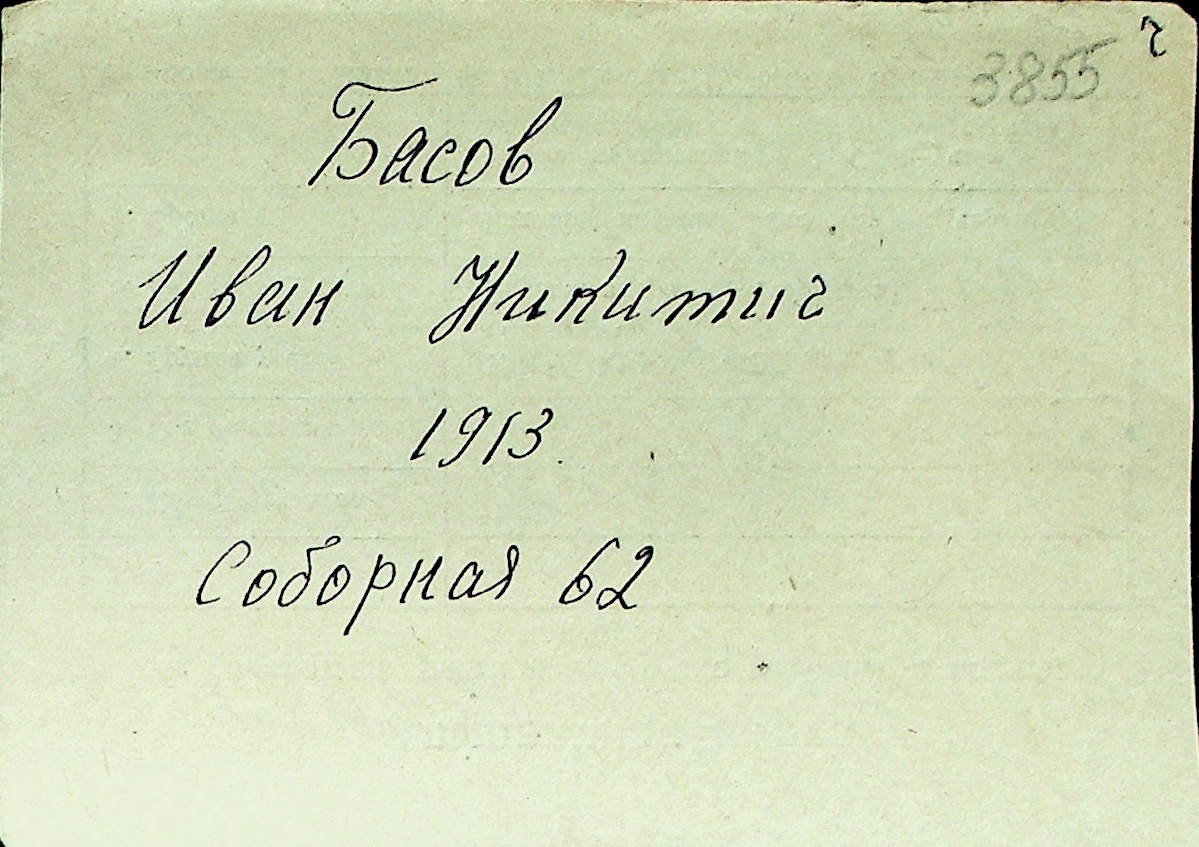 3855 ч
Басов
Иван Никитич
1913.
Соборная 62